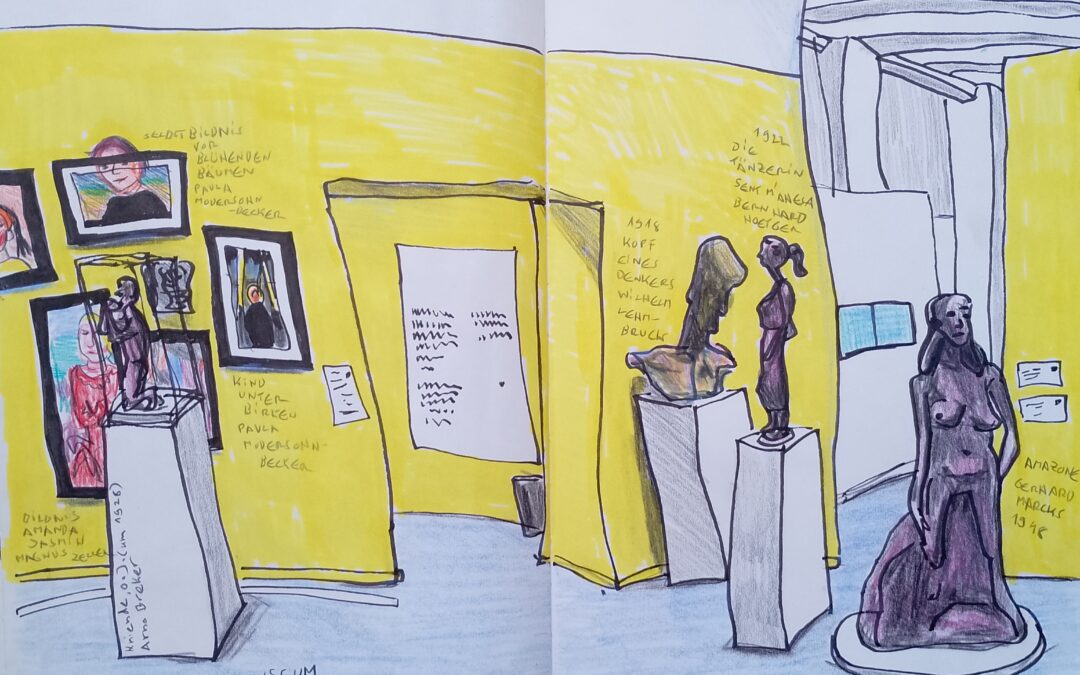 SELBSTBILDNIS
VOR
BLÜHENDEN
BÄUMEN
PAULA
MODERSOHN
-BECKER
KIND
UNTER
BIRKEN
PAULA
MODERSOHN-
BECKER
BILDNIS
AMANDA
JASMIN
MAGNUS ZELLER
Kniende, o.J. (um 1928)
Arno Breker
1918
KOPF
EINES
DENKERS
WILHELM
LEHM-
BRUCK
1922
DIE
TÄNZERIN
SENT M'AHESA
BERNHARD
HOETGER
AMAZONE
GERHARD
MARCKS
1948